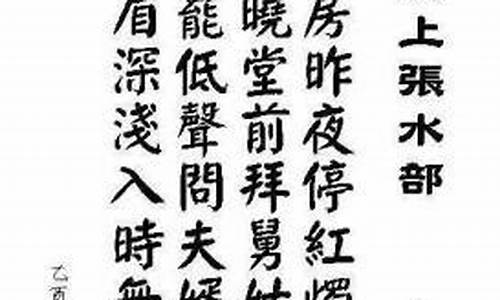 上張水部
房昨夜停紅燭
曉堂前拜舅姑
罷低聲問夫婿
眉深淺入時無
乙酉